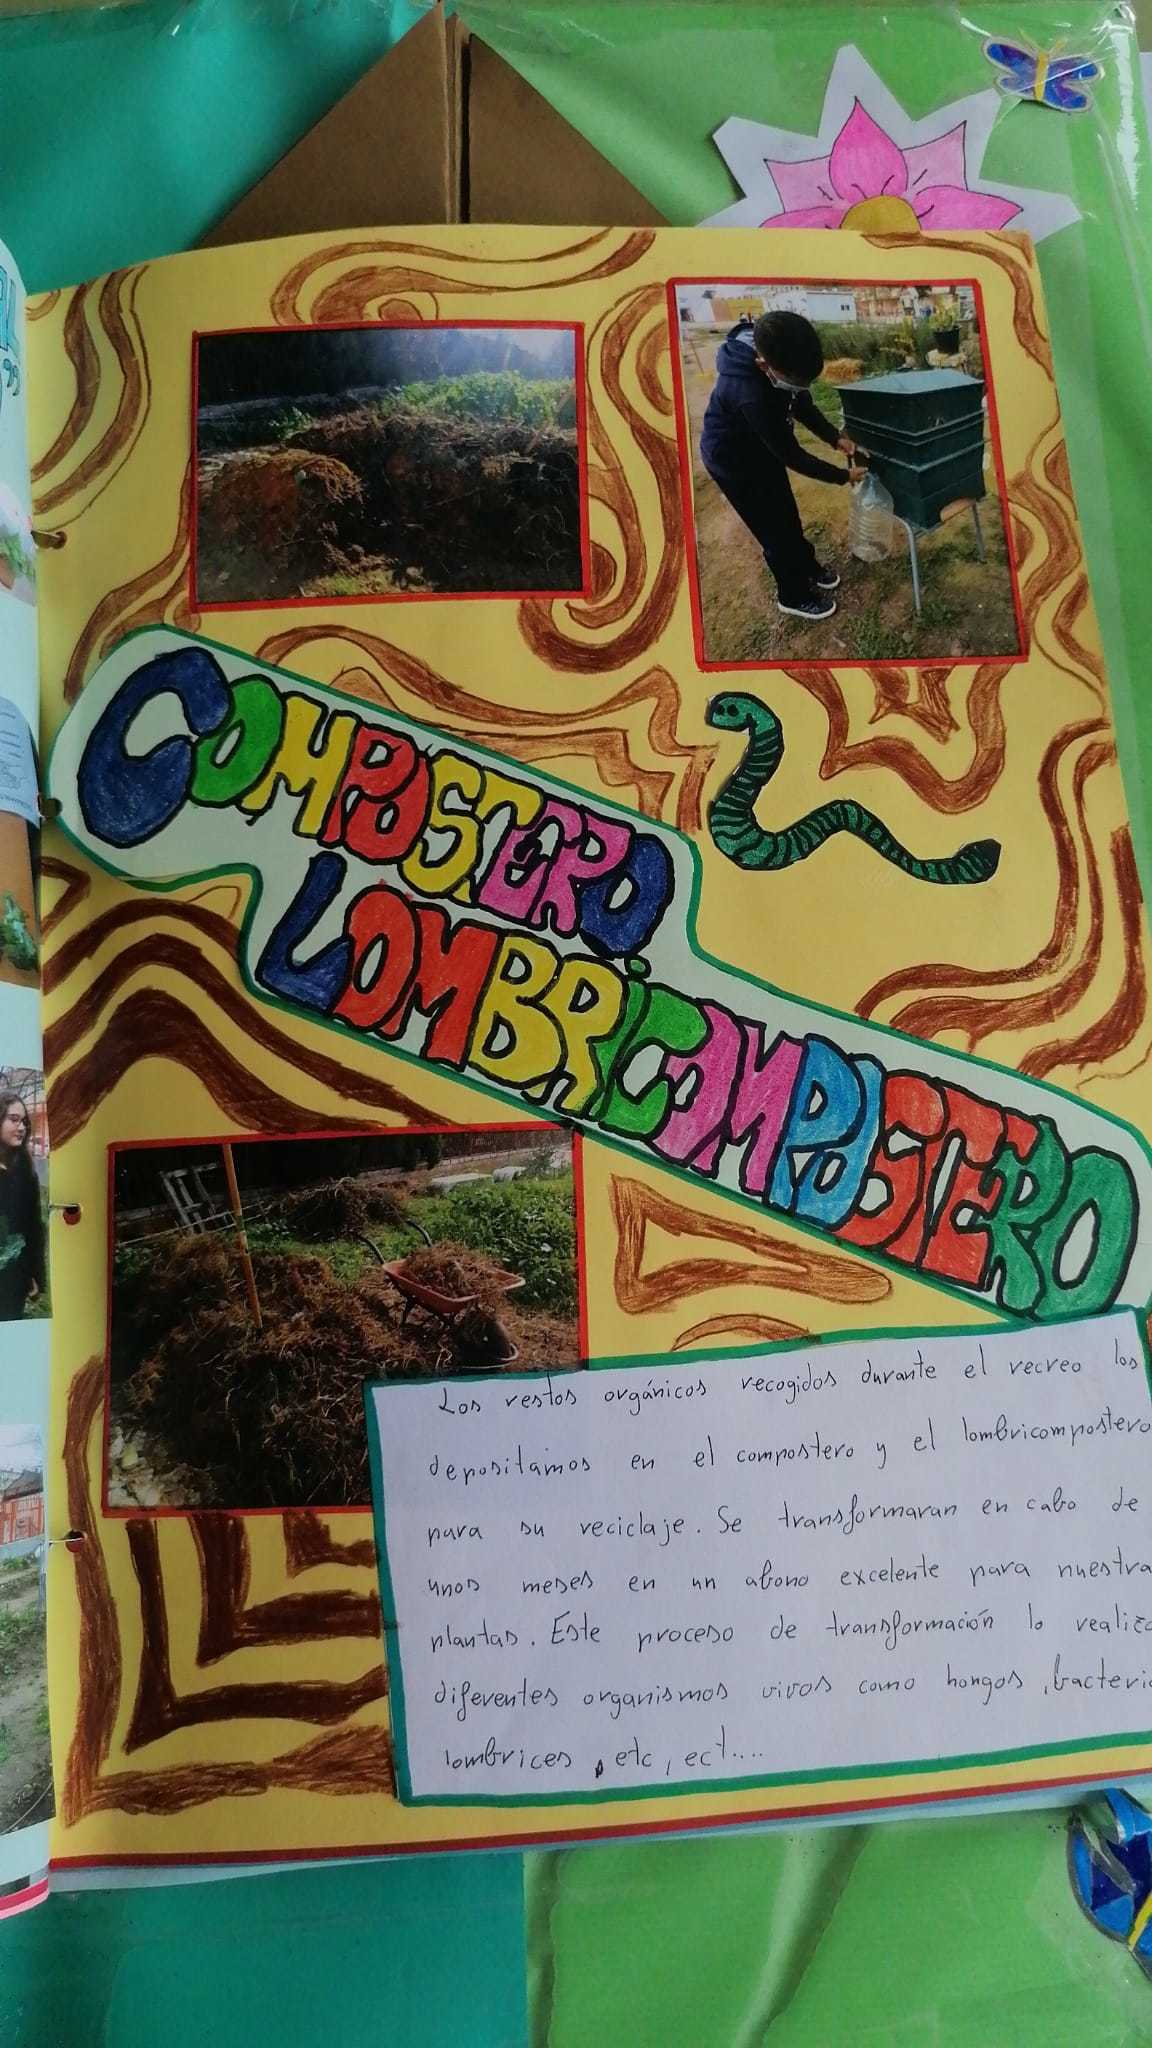 COMPOSTERO
LOMBRICOMPOSTERO
Los restos orgánicos recogidos durante el recreo los
depositamos en el compostero y el lombricompostero
para su reciclaje. Se transformaran en cabo de
unos meses en un abono excelente para nuestra
plantas. Este proceso de transformación lo
diferentes organismos vivos como hongos ,
lombrices , etc , ect....